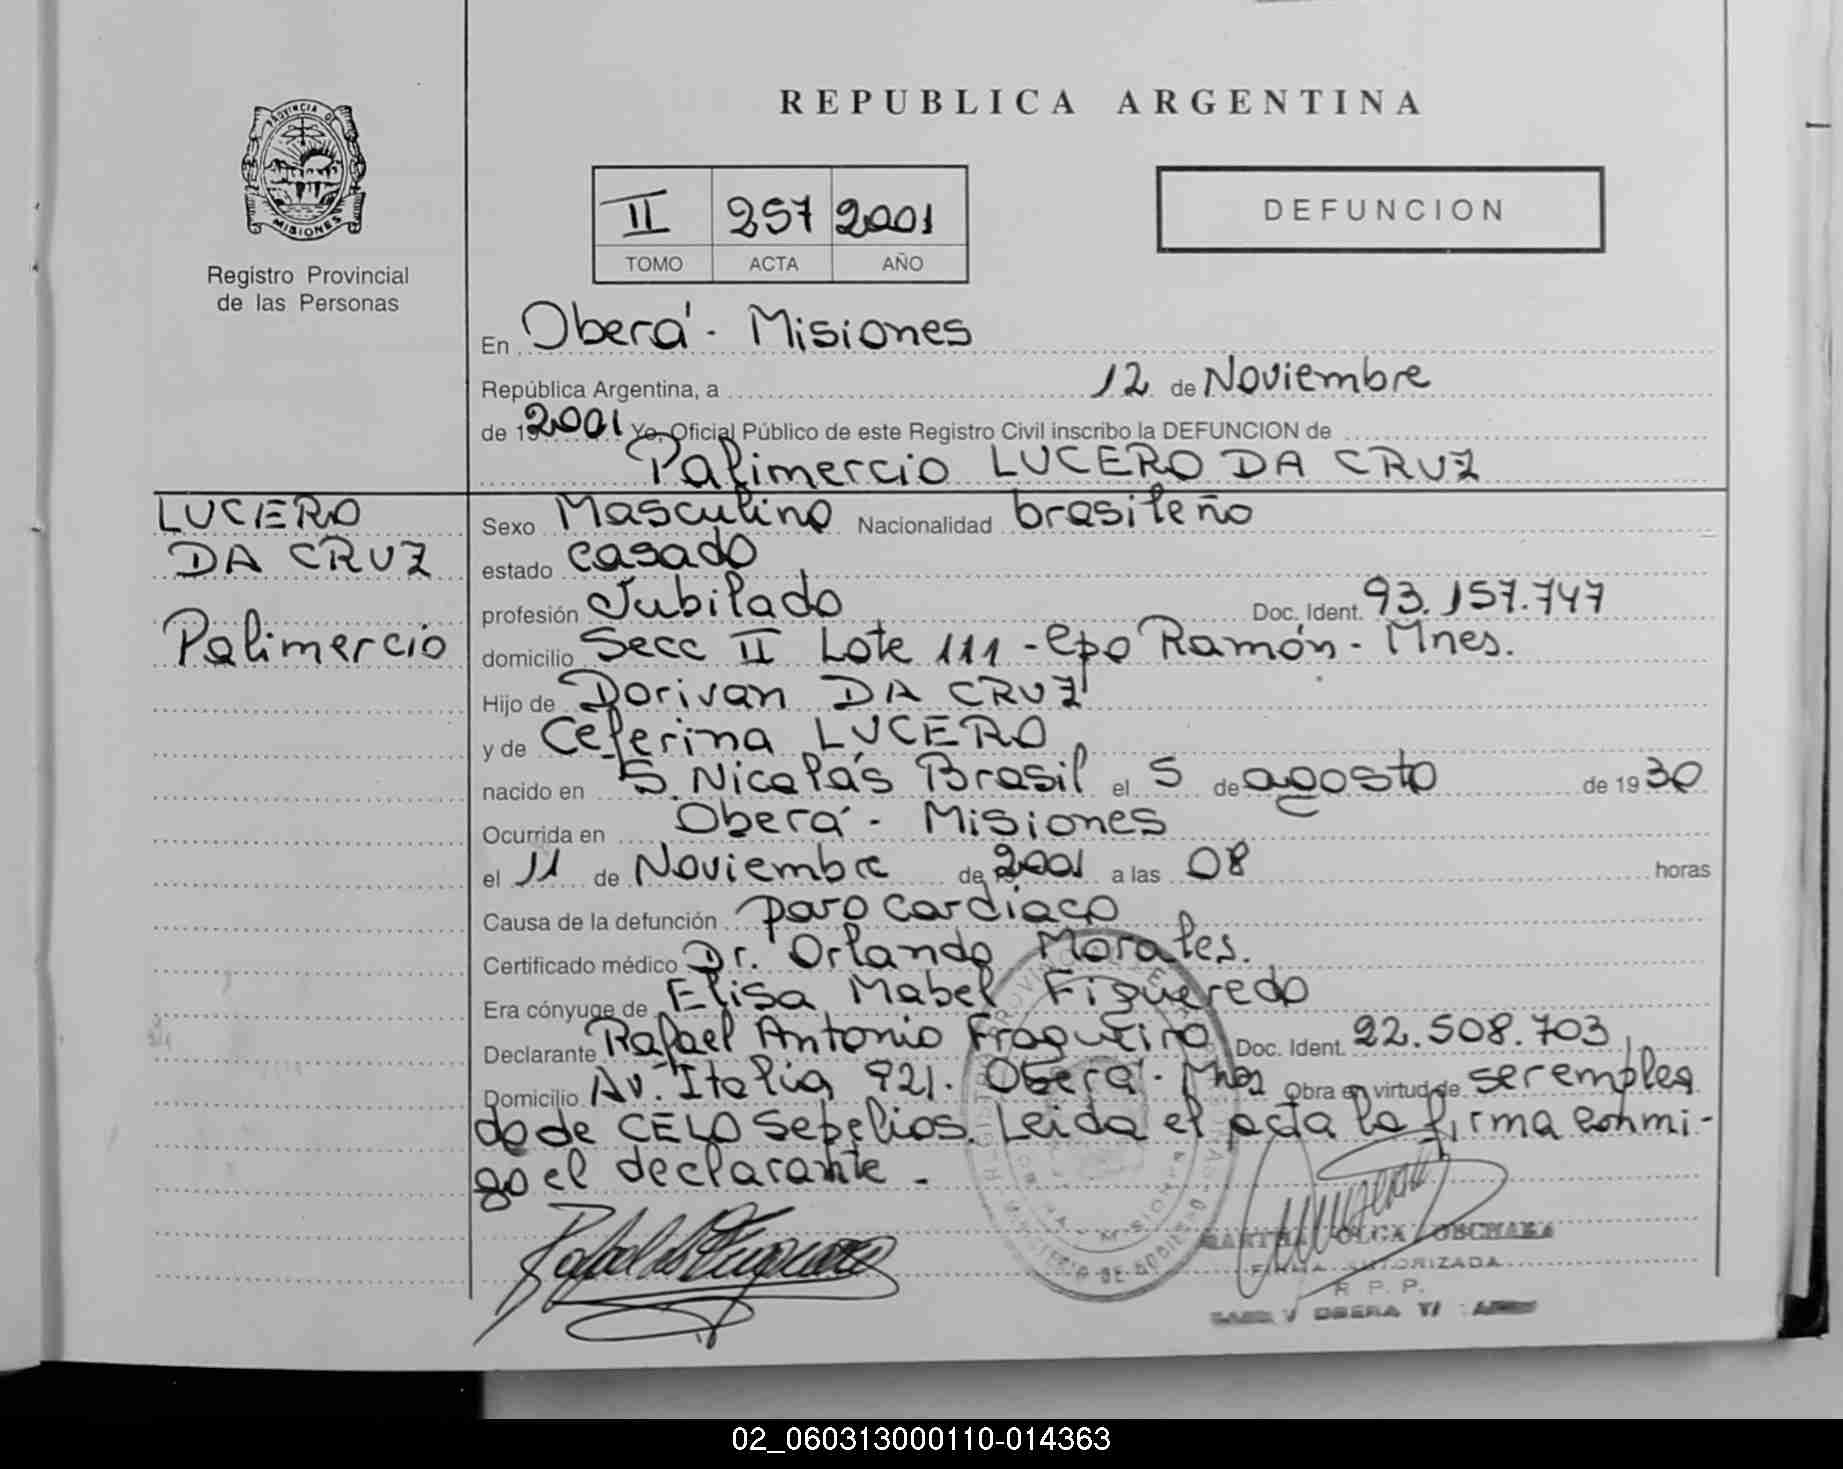 REPUBLICA ARGENTINA
PROVINCIA DE
MISIONES
Registro Provincial
de las Personas
II 257 2001
TOMO ACTA AÑO
DEFUNCION
En Oberá - Misiones
República Argentina, a 12 de Noviembre
de 19 2001 Yo, Oficial Público de este Registro Civil inscribo la DEFUNCION de
Palimercio LUCERO DA CRUZ
LUCERO
DA CRUZ
Palimercio
Sexo Masculino Nacionalidad brasileño
estado casado
profesión Jubilado Doc. Ident. 93.157.747
domicilio Secc II Lote 111 - Cpo Ramón - Mnes.
Hijo de Dorivan DA CRUZ
y de Ceferina LUCERO
nacido en S. Nicolás Brasil el 5 de agosto de 1930
Ocurrida en Oberá - Misiones
el 11 de Noviembre de 2001 a las 08 horas
Causa de la defunción paro cardiaco
Certificado médico Dr. Orlando Morales.
Era cónyuge de Elisa Mabel Figueredo
Declarante Rafael Antonio Fragueiro Doc. Ident. 22.508.703
Domicilio Av. Italia 921. Oberá - Mnes Obra en virtud de ser emplea
do de CELO Sepelios. Leida el acta la firma conmi-
go el declarante.
MARTHA OLGA
FIRMA AUTORIZADA
R. P. P.
OBERA
02_060313000110-014363